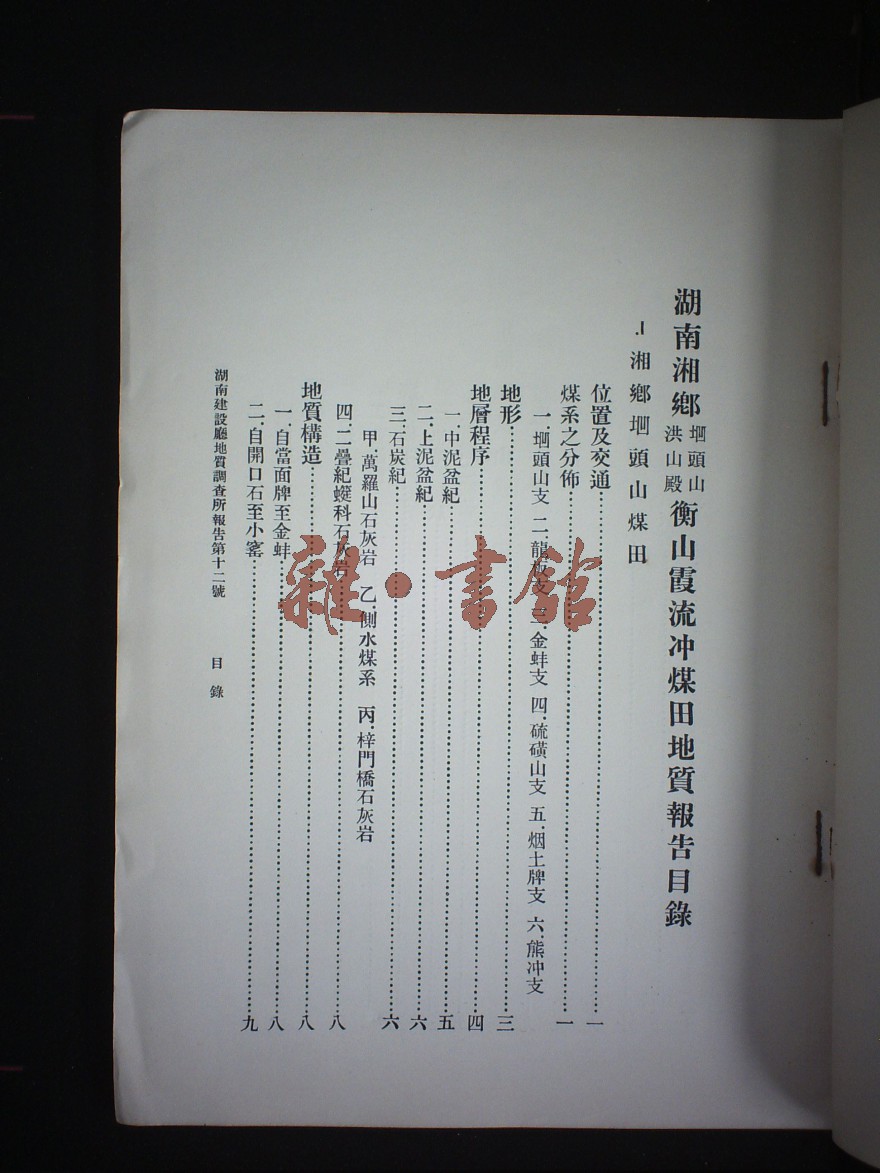 湖南湘鄕壩頭山洪山殿衡山霞流冲煤田地質報告目錄
I. 湘鄕壩頭山煤田
位置及交通……一
煤系之分佈……一
一．壩頭山支 二．龍板支 三．金蚌支 四．硫磺山支 五．烟土牌支 六．熊冲支
地形……三
地層程序……四
一．中泥盆紀……五
二．上泥盆紀……六
三．石炭紀……六
甲．萬羅山石灰岩 乙．側水煤系 丙．梓門橋石灰岩
四．二疊紀䗴科石灰岩……八
地質構造……八
一．自當面牌至金蚌……八
二．自開口石至小窰……九
湖南建設廳地質調查所報告第十二號 目錄
雜·書館